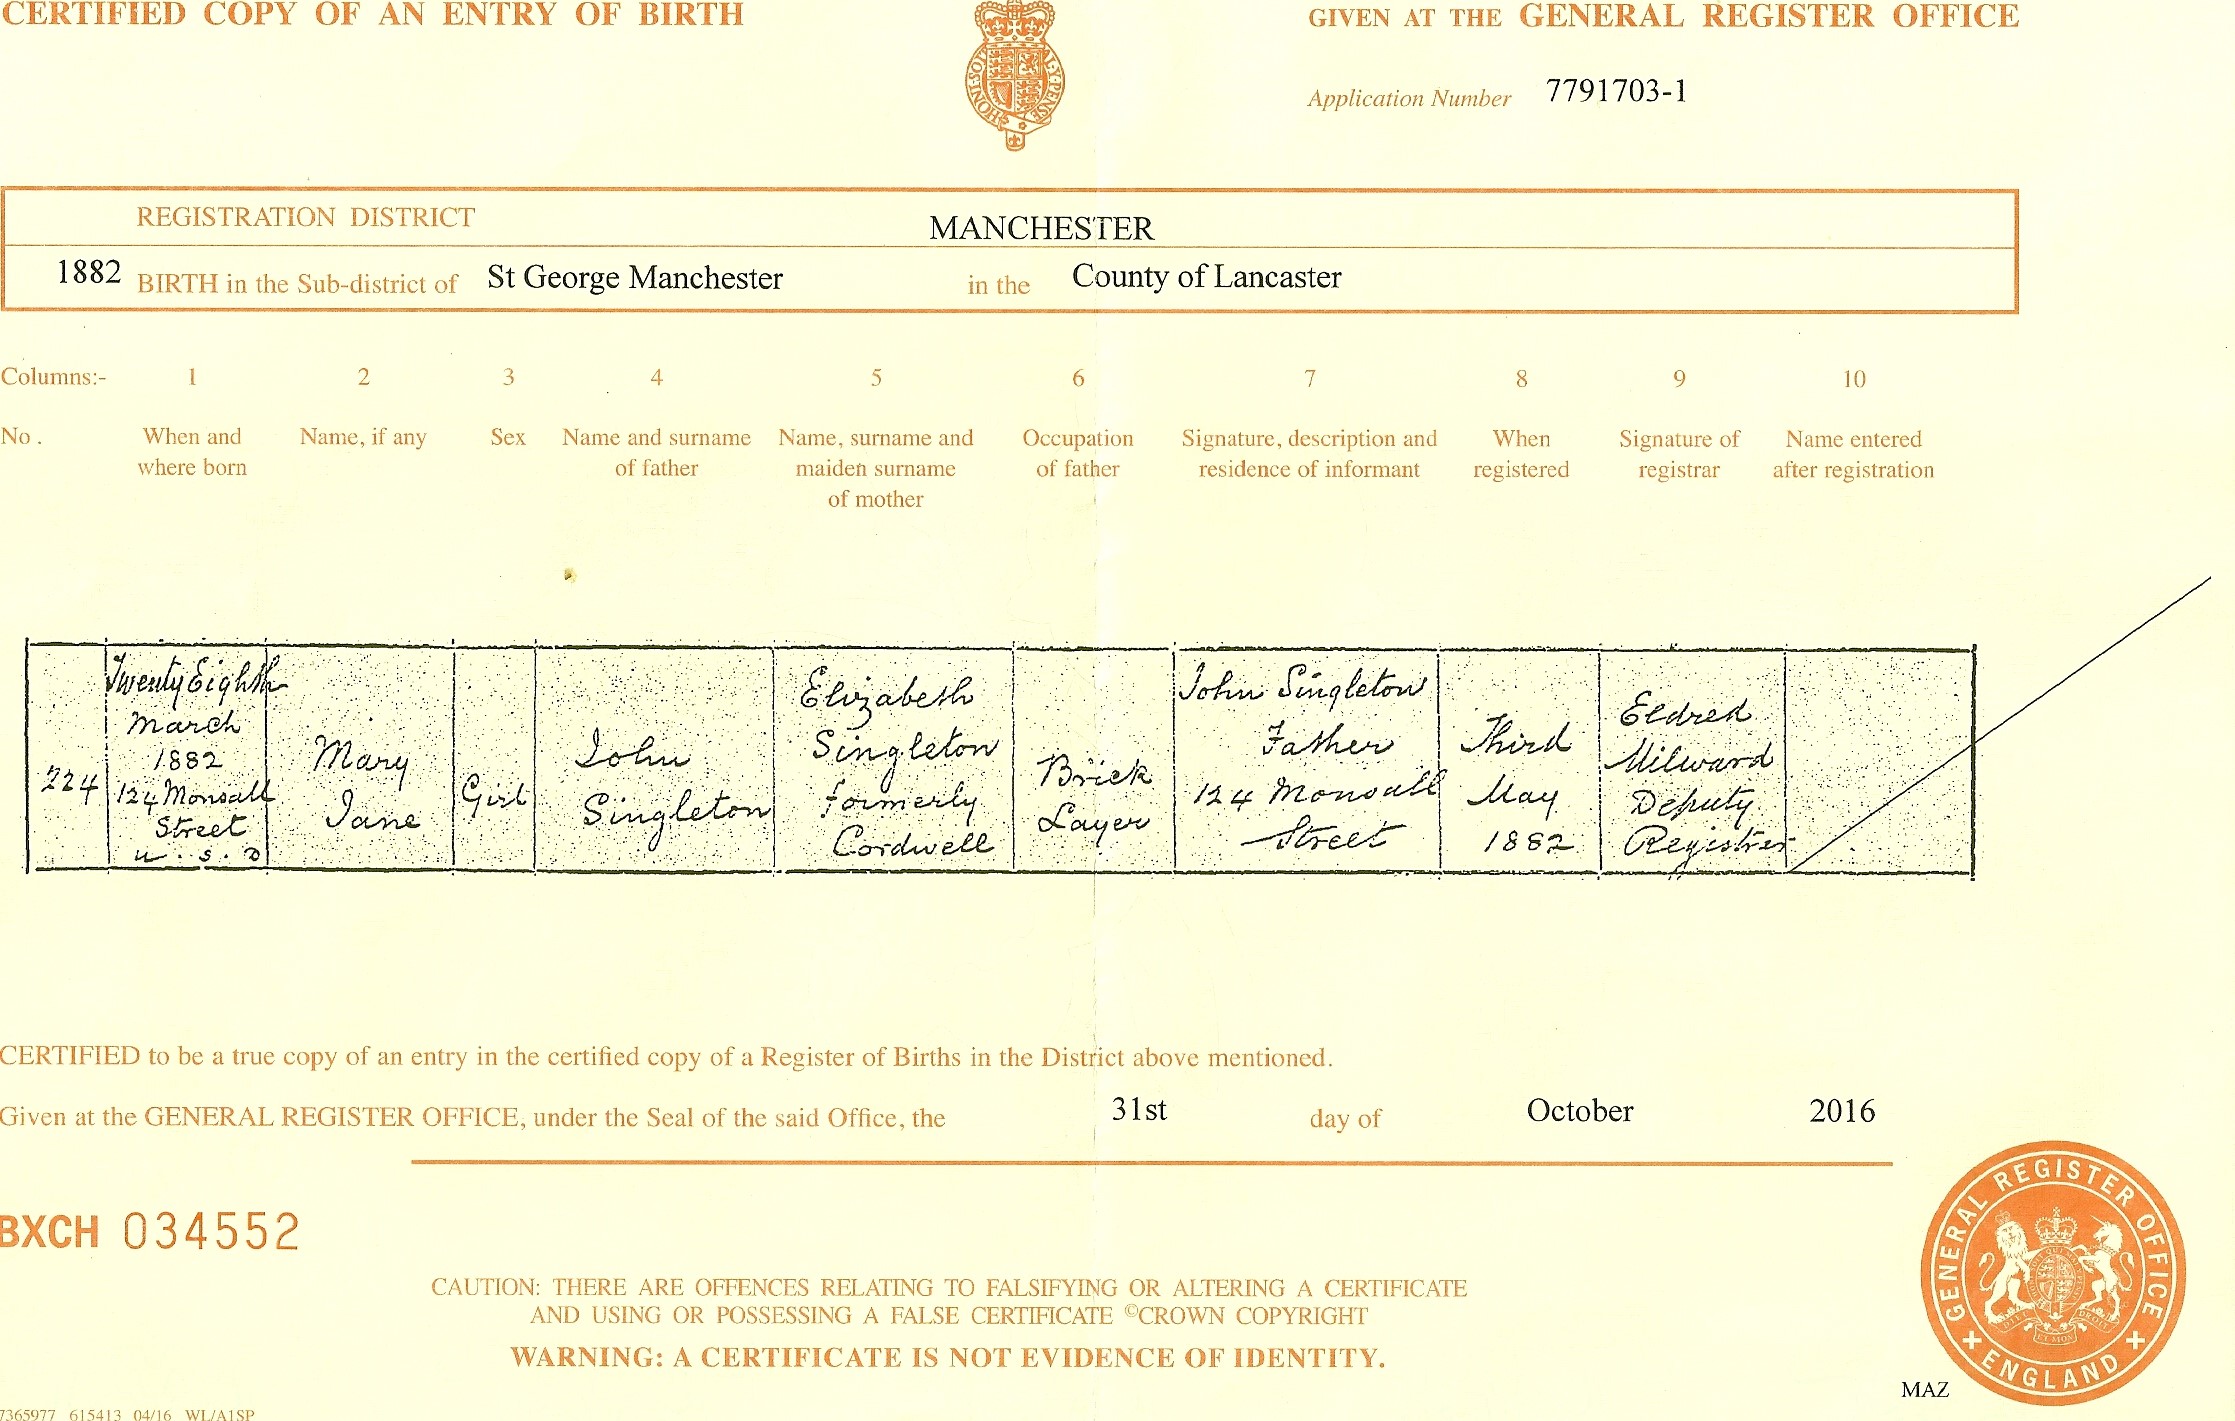 CERTIFIED COPY OF AN ENTRY OF BIRTH
GIVEN AT THE GENERAL REGISTER OFFICE
HONI SOIT Y PENSE
Application Number 7791703-1
REGISTRATION DISTRICT MANCHESTER
1882 BIRTH in the Sub-district of St George Manchester in the County of Lancaster
Columns:- 1 2 3 4 5 6 7 8 9 10
No . When and where born
Name, if any
Sex
Name and surname of father
Name, surname and maiden surname of mother
Occupation of father
Signature, description and residence of informant
When registered
Signature of registrar
Name entered after registration
224
Twenty Eighth
March
1882
124 Monsall
Street
u . s . D
Mary
Jane
Girl
John
Singleton
Elizabeth
Singleton
formerly
Cordwell
Brick
Layer
John Singleton
Father
124 Monsall
Street
Third
May
1882
Eldred
Milward
Deputy
Registrar
CERTIFIED to be a true copy of an entry in the certified copy of a Register of Births in the District above mentioned.
Given at the GENERAL REGISTER OFFICE, under the Seal of the said Office, the 31st day of October 2016
BXCH 034552
CAUTION: THERE ARE OFFENCES RELATING TO FALSIFYING OR ALTERING A CERTIFICATE
AND USING OR POSSESSING A FALSE CERTIFICATE ©CROWN COPYRIGHT
WARNING: A CERTIFICATE IS NOT EVIDENCE OF IDENTITY.
GENERAL REGISTER OFFICE
ENGLAND
MAZ
7365977 615413 04/16 WL/A1SP